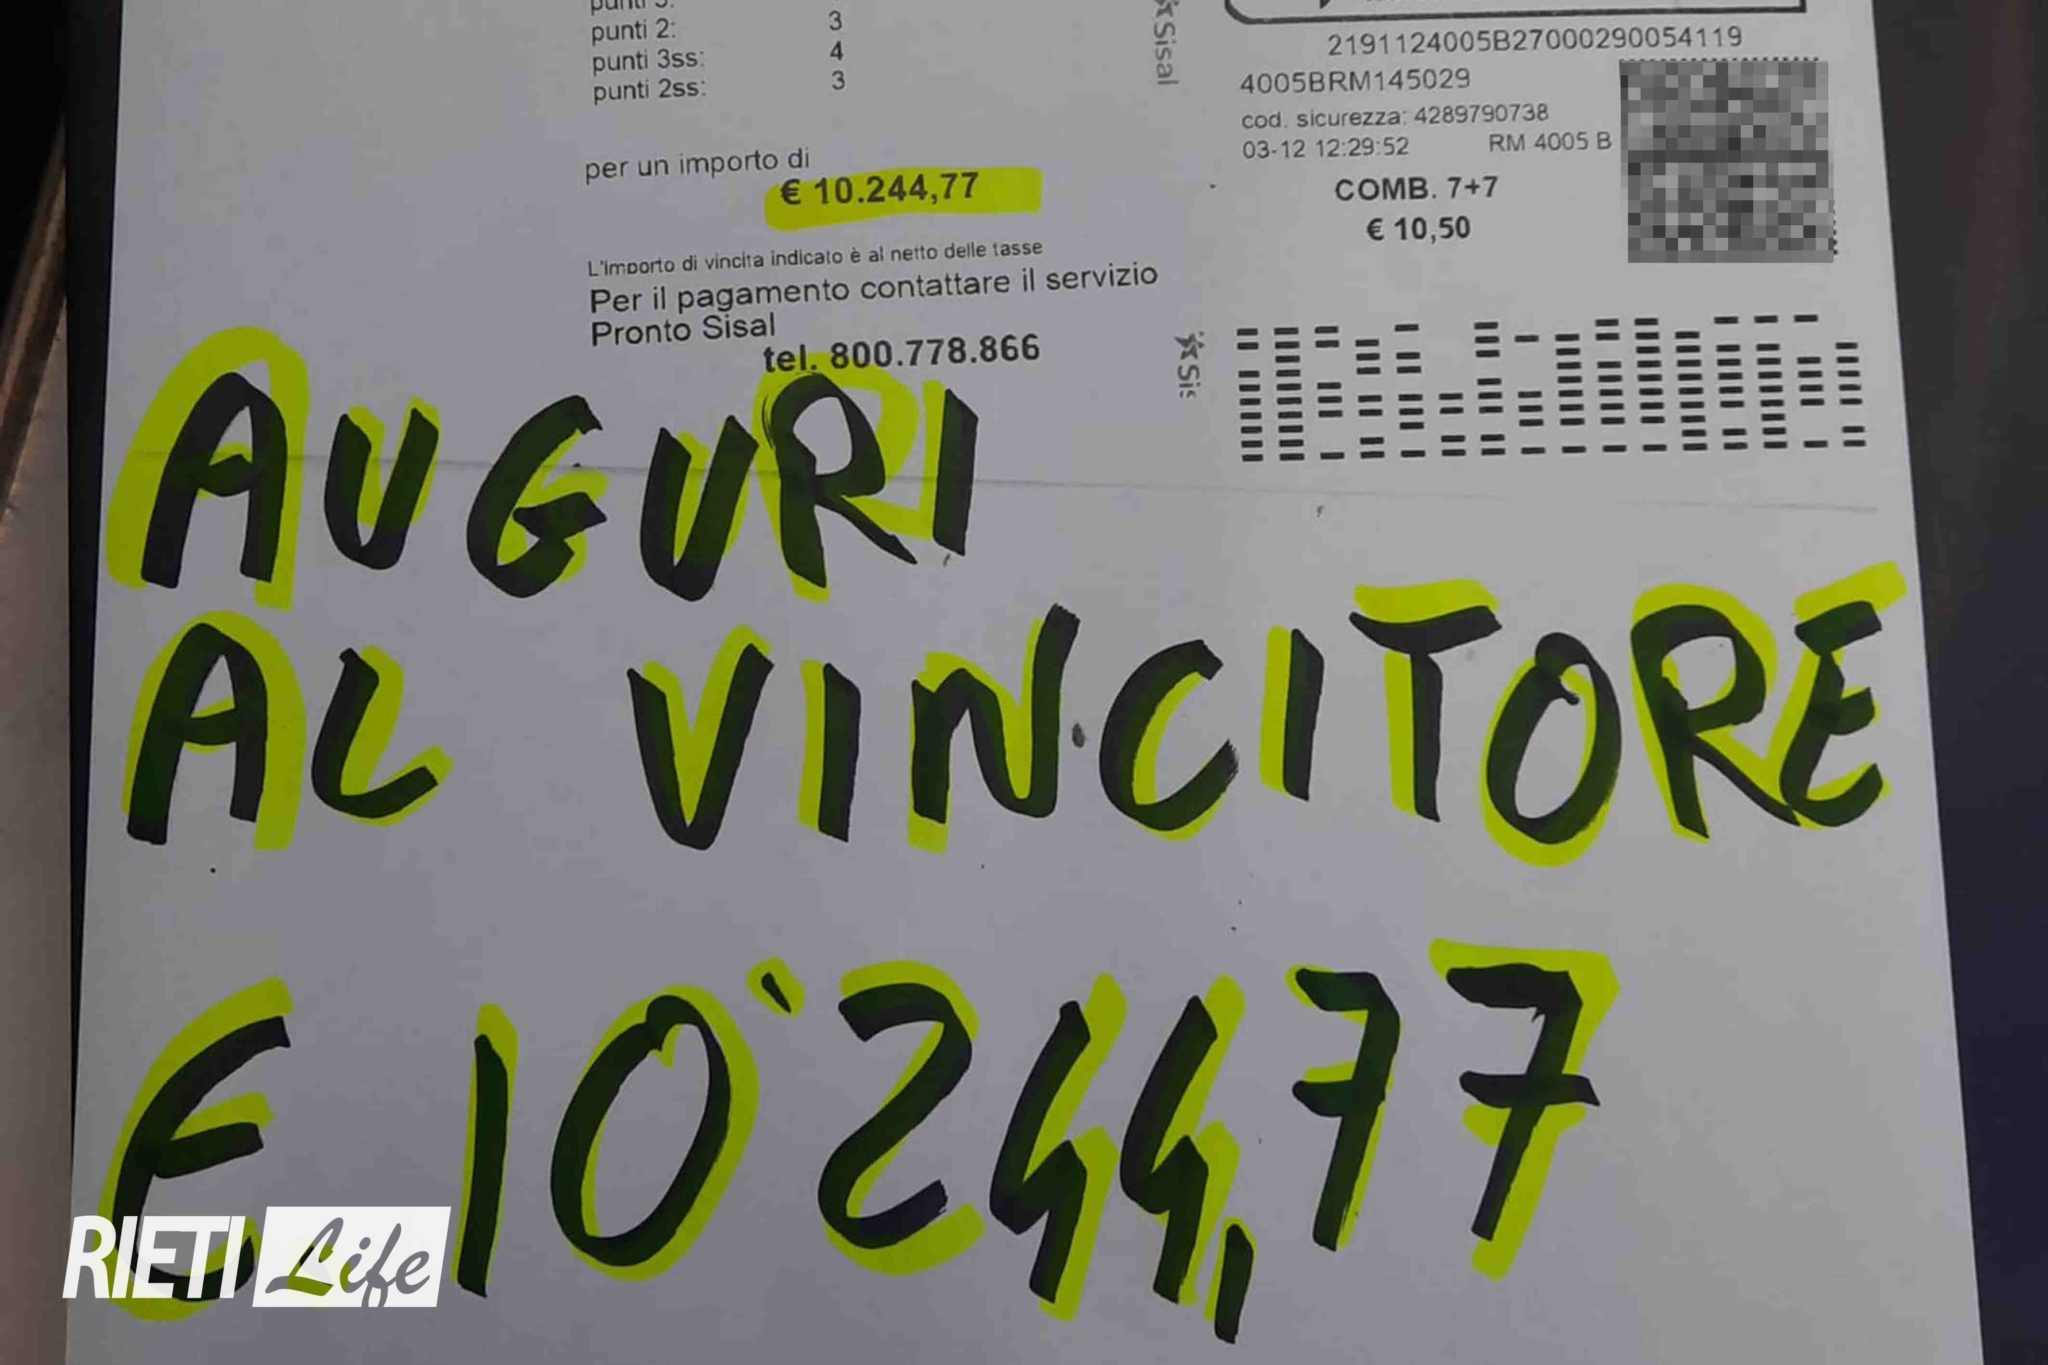 punti 2: 3
punti 3ss: 4
punti 2ss: 3
per un importo di
€ 10.244,77
L'importo di vincita indicato è al netto delle tasse
Per il pagamento contattare il servizio
Pronto Sisal
tel. 800.778.866
Sisal
2191124005B27000290054119
4005BRM145029
cod. sicurezza: 4289790738
03-12 12:29:52 RM 4005 B
COMB. 7+7
€ 10,50
AUGURI
AL VINCITORE
€ 10'244,77
RIETI Life